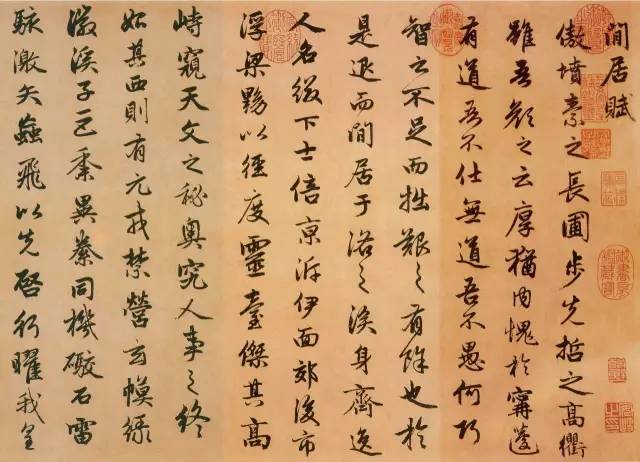 閒居賦
傲墳素之長圃步先哲之高衢
雖吾顏之云厚猶內愧於甯蘧
有道吾不仕無道吾不愚何巧
智之不足而拙艱之有餘也於
是退而閒居于洛之涘身齊逸
人名綴下士倍京泝伊面郊後市
浮梁黝以徑度靈臺傑其高
峙窺天文之秘奧究人事之終
始其西則有元戎禁營玄幙綠
徽溪子巨黍異絭同機礮石雷
駭激矢蝱飛以先啓行曜我皇